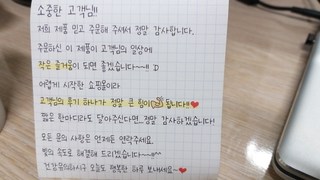 소중한 고객님!!
저희 제품 믿고 주문해 주셔서 정말 감사합니다.
주문하신 이 제품이 고객님의 일상에
작은 즐거움이 되면 좋겠습니다~~!! :D
어렵게 시작한 쇼핑몰이라
고객님의 후기 하나가 정말 큰 힘이 됩니다!!❤
짧은 한마디라도 달아주신다면...정말 감사하겠습니다!
모든 문의 사항은 언제든 연락주세요.
빛의 속도로 해결해 드리겠습니다~~!!
건강유의하시구 오늘도 행복한 하루 보내세요~❤